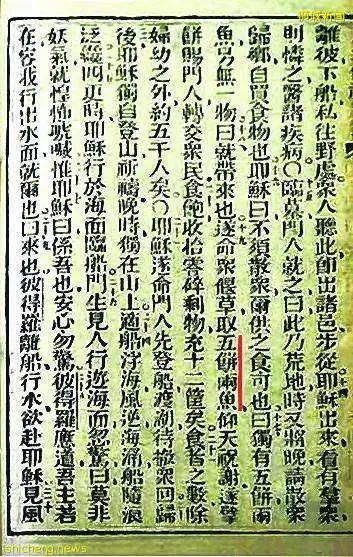 狮城新闻
離彼下船私往野處衆人聽此卽出諸邑步從耶穌出來看有羣衆
則憐之醫諸疾病〇臨墓門人就之曰此乃荒地時又將晚請散衆
歸鄉自買食物也耶穌曰不須散衆爾供之食可也曰獨有五餅兩
魚另無一物曰就帶來也遂命衆偃草取五餅兩魚仰天祝謝遂擘
餅賜門人轉交衆民食飽收拾零碎剩物充十二筐矣食者之數除
婦幼之外約五千人矣〇耶穌遂命門人先登船渡湖待撒衆回歸
後耶穌獨自登山祈禱晚時獨在山上適船浮海風逆海涌船隨浪
泛幾四更時耶穌行於海面臨船門生見人行遊海面忽驚曰莫非
妖氣就惶怖唬喊惟耶穌曰係吾也安心勿驚彼得羅應道吾主若
在容我行出水面就爾也曰來也彼得羅離船行水欲赴耶穌見風
shicheng.news